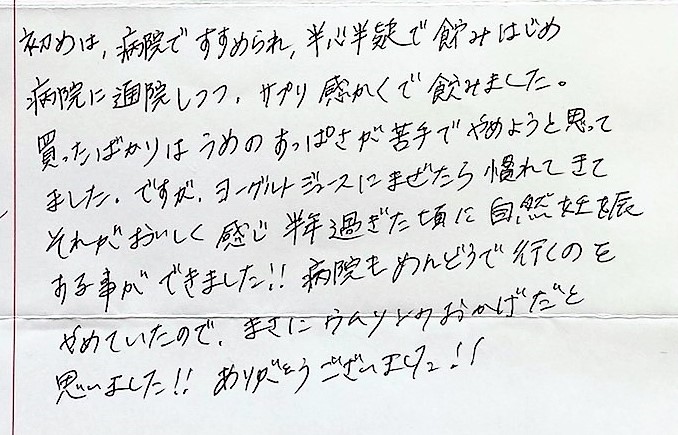 初めは, 病院ですすめられ, 半心半疑で飲みはじめ
病院に通院しつつ、サプリ感かくで飲みました。
買ったばかりはうめのすっぱさが苦手でやめようと思って
ました。ですが、ヨーグルトジュースにまぜたら慣れてきて
それがおいしく感じ半年過ぎた頃に自然妊娠
する事ができました!! 病院もめんどうで行くのを
やめていたので、まさにウムリンのおかげだと
思いました!! ありがとうございました!!